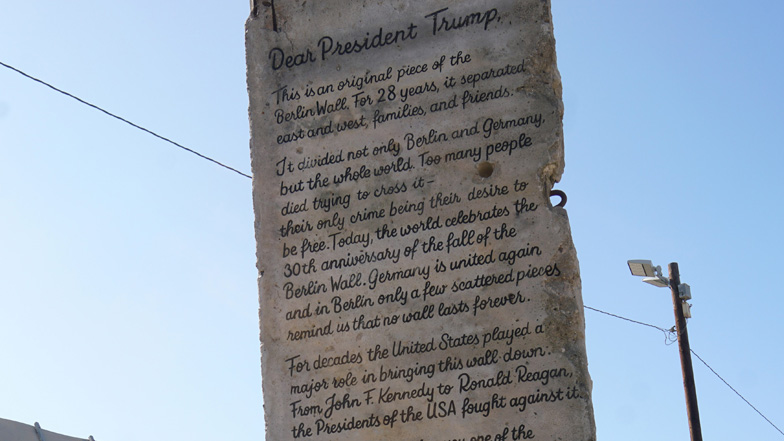 Dear President Trump,
This is an original piece of the
Berlin Wall. For 28 years, it separated
east and west, families, and friends.
It divided not only Berlin and Germany,
but the whole world. Too many people
died trying to cross it –
their only crime being their desire to
be free. Today, the world celebrates the
30th anniversary of the fall of the
Berlin Wall. Germany is united again
and in Berlin only a few scattered pieces
remind us that no wall lasts forever.
For decades the United States played a
major role in bringing this wall down.
From John F. Kennedy to Ronald Reagan,
the Presidents of the USA fought against it.
one of the